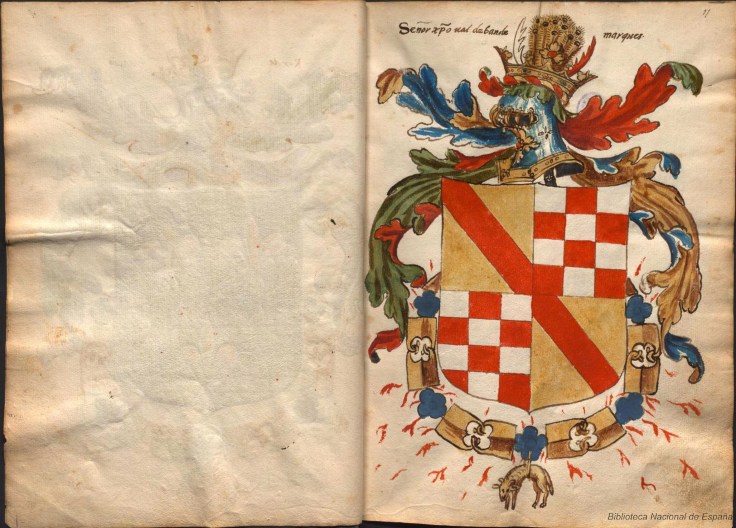 Señor xp̄o val de bande marques.
Biblioteca Nacional de España